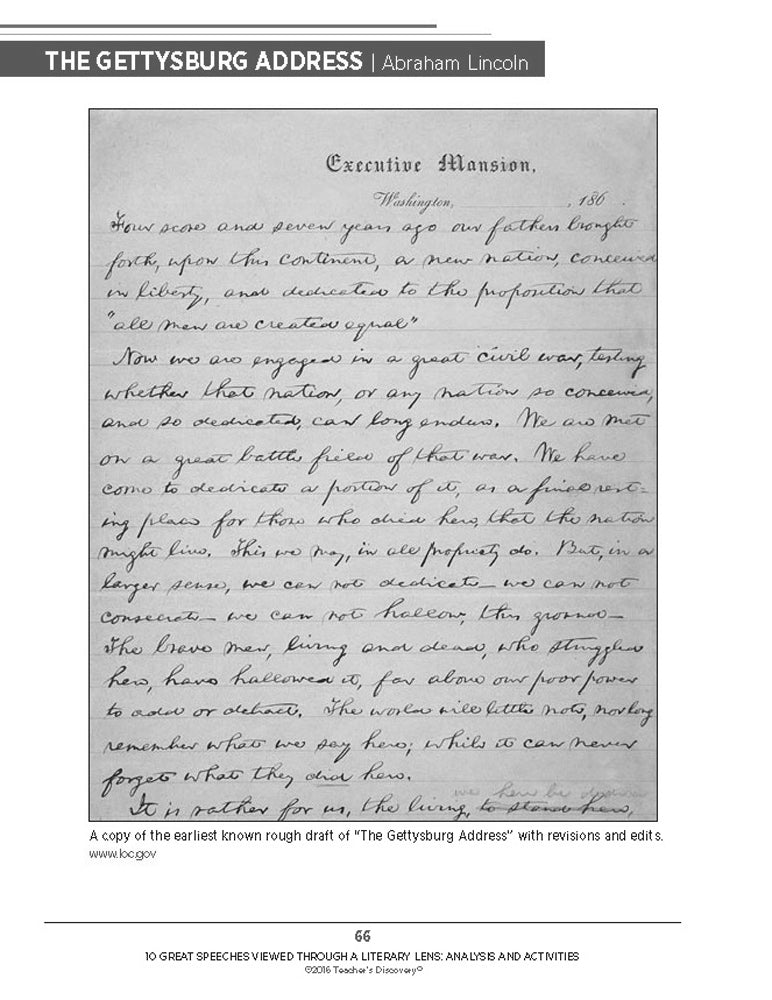 THE GETTYSBURG ADDRESS | Abraham Lincoln
Executive Mansion,
Washington, , 186 .
Four score and seven years ago our fathers brought
forth, upon this continent, a new nation, conceived
in liberty, and dedicated to the proposition that
"all men are created equal"
Now we are engaged in a great civil war, testing
whether that nation, or any nation so conceived,
and so dedicated, can long endure. We are met
on a great battle field of that war. We have
come to dedicate a portion of it, as a final rest-
ing place for those who died here, that the nation
might live. This we may, in all propriety do. But, in a
larger sense, we can not dedicate — we can not
consecrate — we can not hallow, this ground —
The brave men, living and dead, who struggled
here, have hallowed it, far above our poor power
to add or detract. The world will little note, nor long
remember what we say here; while it can never
forget what they did here.
we here be
It is rather for us, the living, to stand here,
A copy of the earliest known rough draft of "The Gettysburg Address" with revisions and edits.
www.loc.gov
66
10 GREAT SPEECHES VIEWED THROUGH A LITERARY LENS: ANALYSIS AND ACTIVITIES
©2016 Teacher's Discovery®